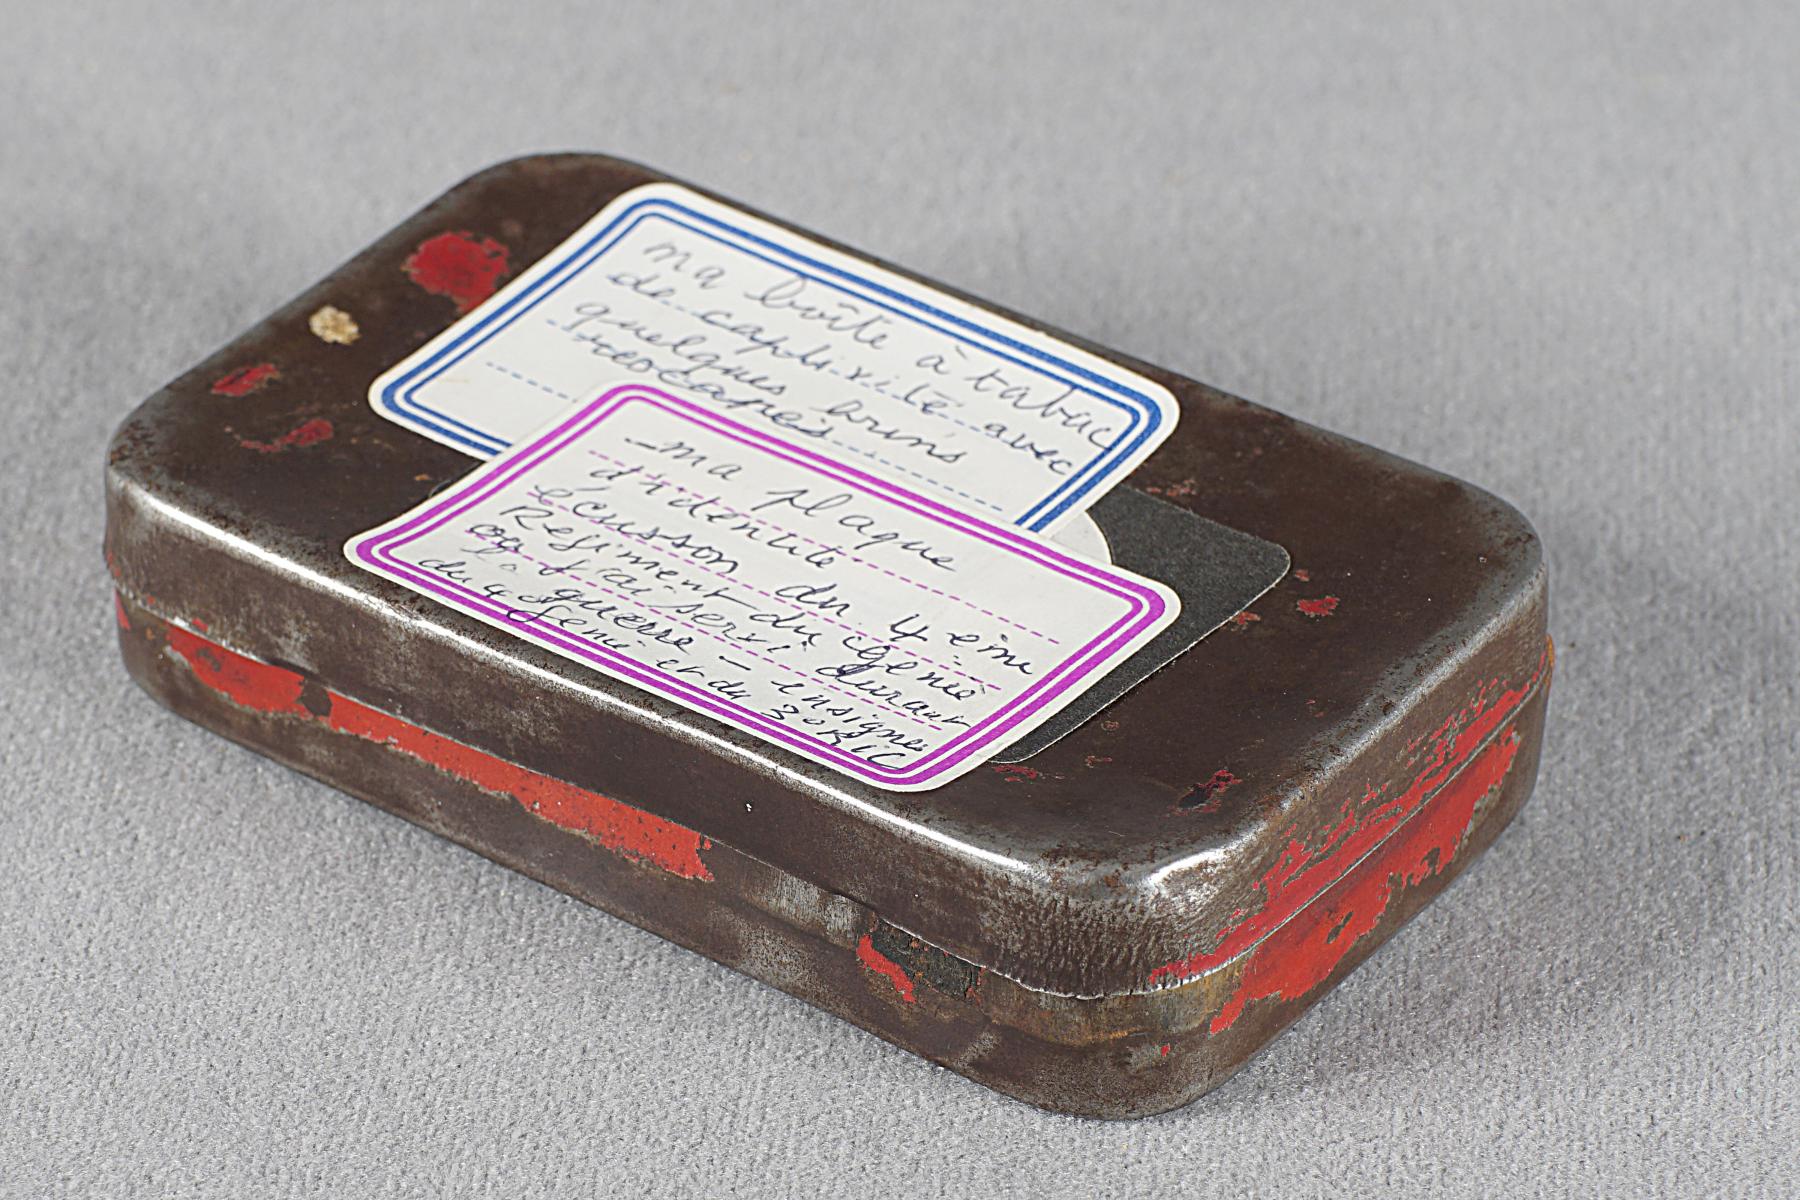 ma boîte à tabac
de captivité avec
quelques bruns
ma plaque
d'identité
écusson du 4 eim
Regiment du Génie
où j'ai servi durant
guerre - insigne
du 4 Génie et du 30 RIC